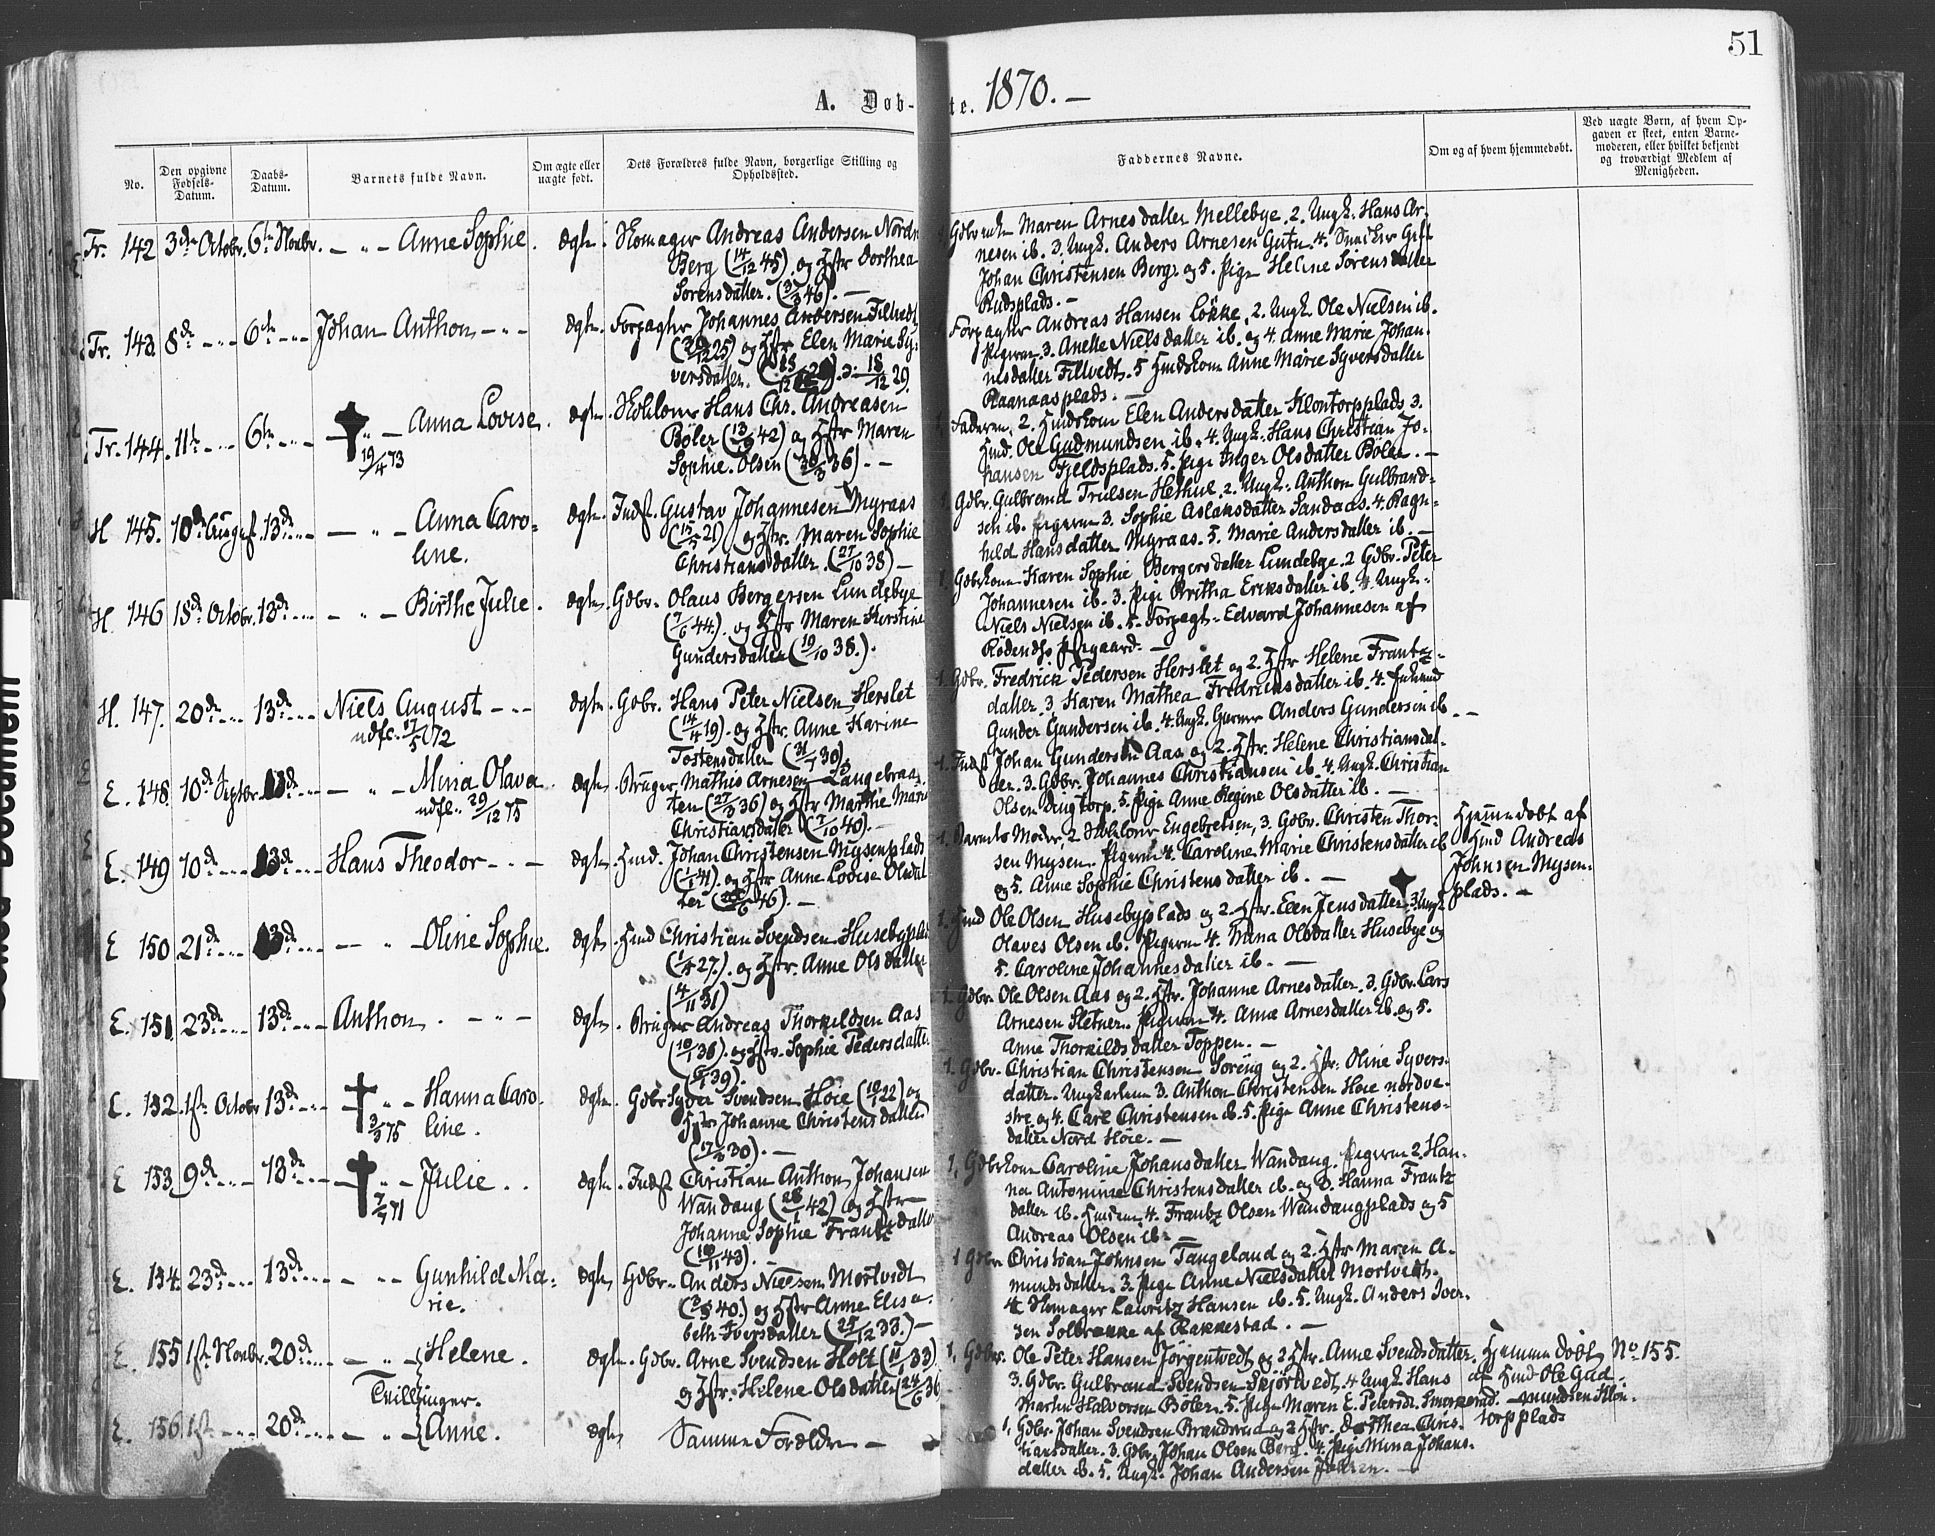 51
A. Døb- te. 1870. —
No.
Den opgivne Fødsels-Datum.
Daabs-Datum.
Barnets fulde Navn.
Om ægte eller uægte født.
Dets Forældres fulde Navn, borgerlige Stilling og Opholdssted.
Faddernes Navne.
Om og af hvem hjemmedøbt.
Ved uægte Børn, af hvem Opgaven er skeet, enten Barnemoderen, eller hvilket bekjendt og troværdigt Medlem af Menigheden.
Tr. 142 3de Octobr. 6te Novbr. — " — Anne Sophie. ægte. Skomager Andreas Andersen Nordre
Berg (14/12 45). og Hstr Dorthea
Sørensdatter. (3/3 46). —
Maren Arnesdatter Mellebye. 2. Ungk. Hans Ar-
nesen ib. 3. Ungk. Anders Arnesen Gutu. 4.
Johan Christensen Berg. og 5. Pige Helene Sørensdatter
Rudsplads. —
Tr. 143 8de — " — 6te — " — Johan Anthon — " — ægte. Forpagter Johannes Andersen Filtvedt
25) og Hstr Elen Marie Sy-
versdatter. 18/12 29.
Forpagter Andreas Hansen Løkke, 2. Ungk. Ole Nielsen ib.
Pigerne 3. Anette Nielsdatter ib. og 4. Anne Marie Johan-
nesdatter Filtvedt. 5 Hmdskone Anne Marie Syversdatter
Raanaasplads. —
Tr. 144. 11te — " — 6te — " — — " — Anna Lovise. ægte. Hans Chr. Andreasen
19/4 73
Bøler (13/9 42) og Hstr Maren
Sophie Olsen (30/3 36). —
1. Faderen, 2. Hmdskone Elen Andersdatter Klontorpplads 3.
Hmd. Ole Gudmundsen ib. 4. Ungk. Hans Christian Jo-
hansen Fjeldsplads. 5. Pige Inger Olsdatter Bøler. —
H 145. 10de August. 13de — " — — " — Anna Caro-
line.
ægte. Indst. Gustav Johannesen Myraas
21) og Hstr. Maren Sophie
Christiansdatter. (27/10 38) —
1. Gdbr. Gulbrand Trulsen Hethue. 2. Ungk. Anthon Gulbrand-
sen ib. Pigerne 3. Sophie Aslaksdatter Sandaas. 4. Ragn-
hild Hansdatter Myraas. 5. Marie Andersdatter ib. —
H. 146 18de Octobr. 13de — " — — " — Birthe Julie. ægte. Gdbr. Olaus Bergersen Lundebye
(7/6 44). og Hstr Maren Kirstine
Gundersdatter (19/10 38.).
1. Gdbrkone Karen Sophie Bergersdatter Lundebye. 2 Gdbr. Peter
Johannesen ib. 3. Pige Britha Eriksdatter ib. 4. Ungk.
Niels Nielsen ib. 5. Forpagt. Edvard Johannesen af
Rødenæs Pstgaard. —
H. 147. 20de — " — 13de — " — Niels August — " — ægte. Gdbr. Hans Peter Nielsen Herslet
udfl. 17/5 72
(14/4 19). og Hstr. Anne Karine
Tostensdatter (31/1 30).
1. Gdbr. Fredrick Pedersen Herslet og 2. Hstr Helene Frantz-
datter. 3. Karen Mathea Fredricksdatter ib. 4.
Gunder Gundersen ib. 4. Ungk. Anders Gundersen ib. —
E. 148 10de Septbr. 13de — " — — " — Mina Olava ægte. Bruger Mathis Arnesen Langebraa-
udfl. 29/12 75
ten (27/3 36) og Hstr Marthe Marie
Christiansdatter (7/10 40). —
1. Indst Johan Gundersen Aas og 2. Hstr. Helene Christiansdat-
ter. 3. Gdbr. Johannes Christiansen ib. 4. Ungk. Christian
Olsen Bingtorp. 5. Pige Anne Regine Olsdatter ib. —
E. 149 10de — " — 13de — " — Hans Theodor — " — ægte. Hmd. Johan Christensen Mysenplads
(1/1 41). og Hstr Anne Lovise Olsdat-
ter 46). —
1. Barnets Moder, 2. Engebretsen, 3. Gdbr. Christen Thor-
sen Mysen. Pigerne 4. Caroline Marie Christensdatter ib
og 5. Anne Sophie Christensdatter ib. —
Hjemmedøbt af
Hmd Andreas
Johnsen Mysen-
plads. —
E 150 21de — " — 13de — " — — " — Oline Sophie. ægte. Hmd Christian Svendsen Husebyplads
(1/4 27.). og Hstr. Anne Olsdatter
(4/11 31)
1. Hmd Ole Olsen Husebyplads og 2. Hstr. Elen Jensdatter 3. Ungk
Olaves Olsen ib. Pigerne 4. Mina Olsdatter Husebye og
5. Caroline Johannesdatter ib. —
E. 151 23de — " — 13de — " — Anthon. — " — ægte. Bruger Andreas Thorkildsen Aas
(10/1 36). og Hstr. Sophie Pedersdatter
39).
1. Gdbr. Ole Olsen Aas og 2. Hstr. Johanne Arnesdatter. 3. Gdbr. Lars
Arnesen Sletner. Pigerne 4. Anne Arnesdatter ib. og 5.
Anne Thorkildsdatter Toppen. —
E. 152. 1ste Octobr 13de — " — — " — Hanna Caro-
3/3 75 line.
ægte. Gdbr Syver Svendsen Høie 22) og
Hstr Johanne Christensdatter
(17/3 30). —
1. Gdbr. Christian Christensen Soreng og 2. Hstr. Oline Syvers-
datter. Ungkarlene 3. Anthon Christensen Høie nordve-
stre og 4. Carl Christensen ib. 5. Pige Anne Christens-
datter Nord Høie. —
E 153 9de — " — 13de — " — — " — Julie. ægte. Indst Christian Anthon Johansen
7/7 71
Wandaug (28/1 42) og Hstr
Johanne Sophie Frantzdatter
(10/11 43). —
1. Gdbrkone Caroline Johansdatter Wandaug. Pigerne 2. Han-
na Antonine Christensdatter ib. og 3. Hanna Frantz-
datter ib. 4. Frantz Olsen Wandaugplads og 5
Andreas Olsen ib. —
E. 154. 23de — " — 13de — " — — " — Gunhild Ma-
rie.
ægte Gdbr. Anders Nielsen Mortvedt
40.) og Hstr Anne Elisa-
beth Iversdatter (25/12 38.) —
1 Gdbr. Christian Johnsen Tangeland og 2. Hstr Maren A-
mundsdatter. 3. Pige Anne Nielsdatter Mortvedt.
4. Skomager Lauritz Hansen ib. 5. Ungk. Anders Iver-
sen Solbrække af Rakkestad. —
E. 155 1ste Novbr. 20de — " — — " — Helene. ægte. Gdbr. Arne Svendsen Holt 33)
og Hstr. Helene Olsdatter (24/6 36
1. Gdbr. Ole Peter Hansen Jørgentvedt og 2 Hstr. Anne Svendsdatter.
3. Gdbr. Gulbrand Svendsen Skjørtvedt. 4 Ungk Hans
Martin Halvorsen Bøler. 5. Pige Maren E. Petersd.
Hjemmedøbt
af Hmd Ole Gud-
mundsen Klon-
torpplads
No. 155.
Tvillinger.
E. 156 1ste — " — 20de — " — — " — Anne. ægte Samme Forældre —
1. Gdbr. Johan Svendsen Brandsrud og 2 Hstr. Dorthea Chris-
tiansdatter. 3. Gdbr. Johan Olsen Berg. 4. Pige Mina Johans-
datter ib. 5. Ungk. Johan Andersen —